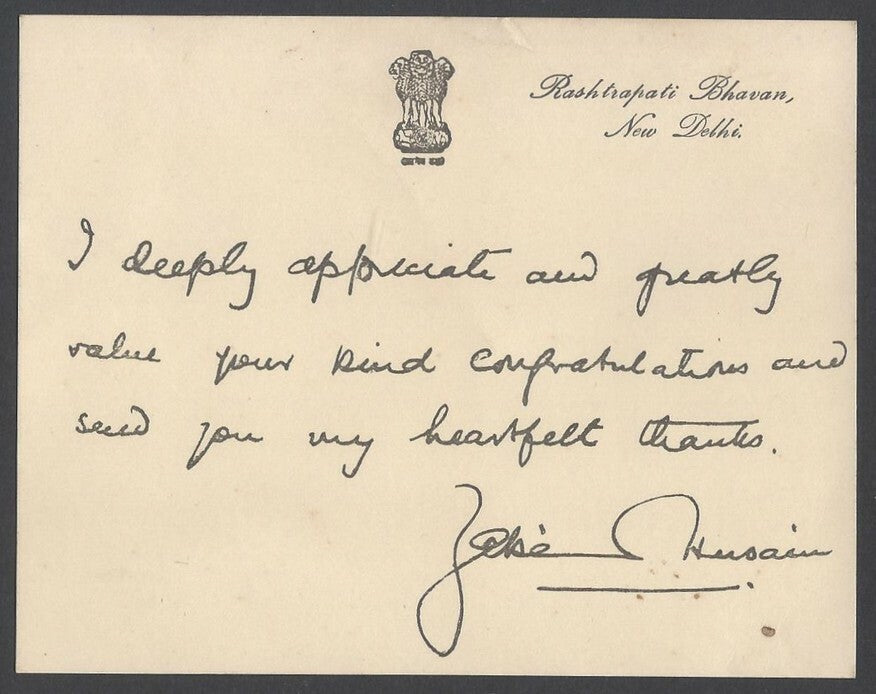 Rashtrapati Bhavan,
New Delhi.
I deeply appreciate and greatly
value your kind congratulations and
send you my heartfelt thanks.
Zakir Husain